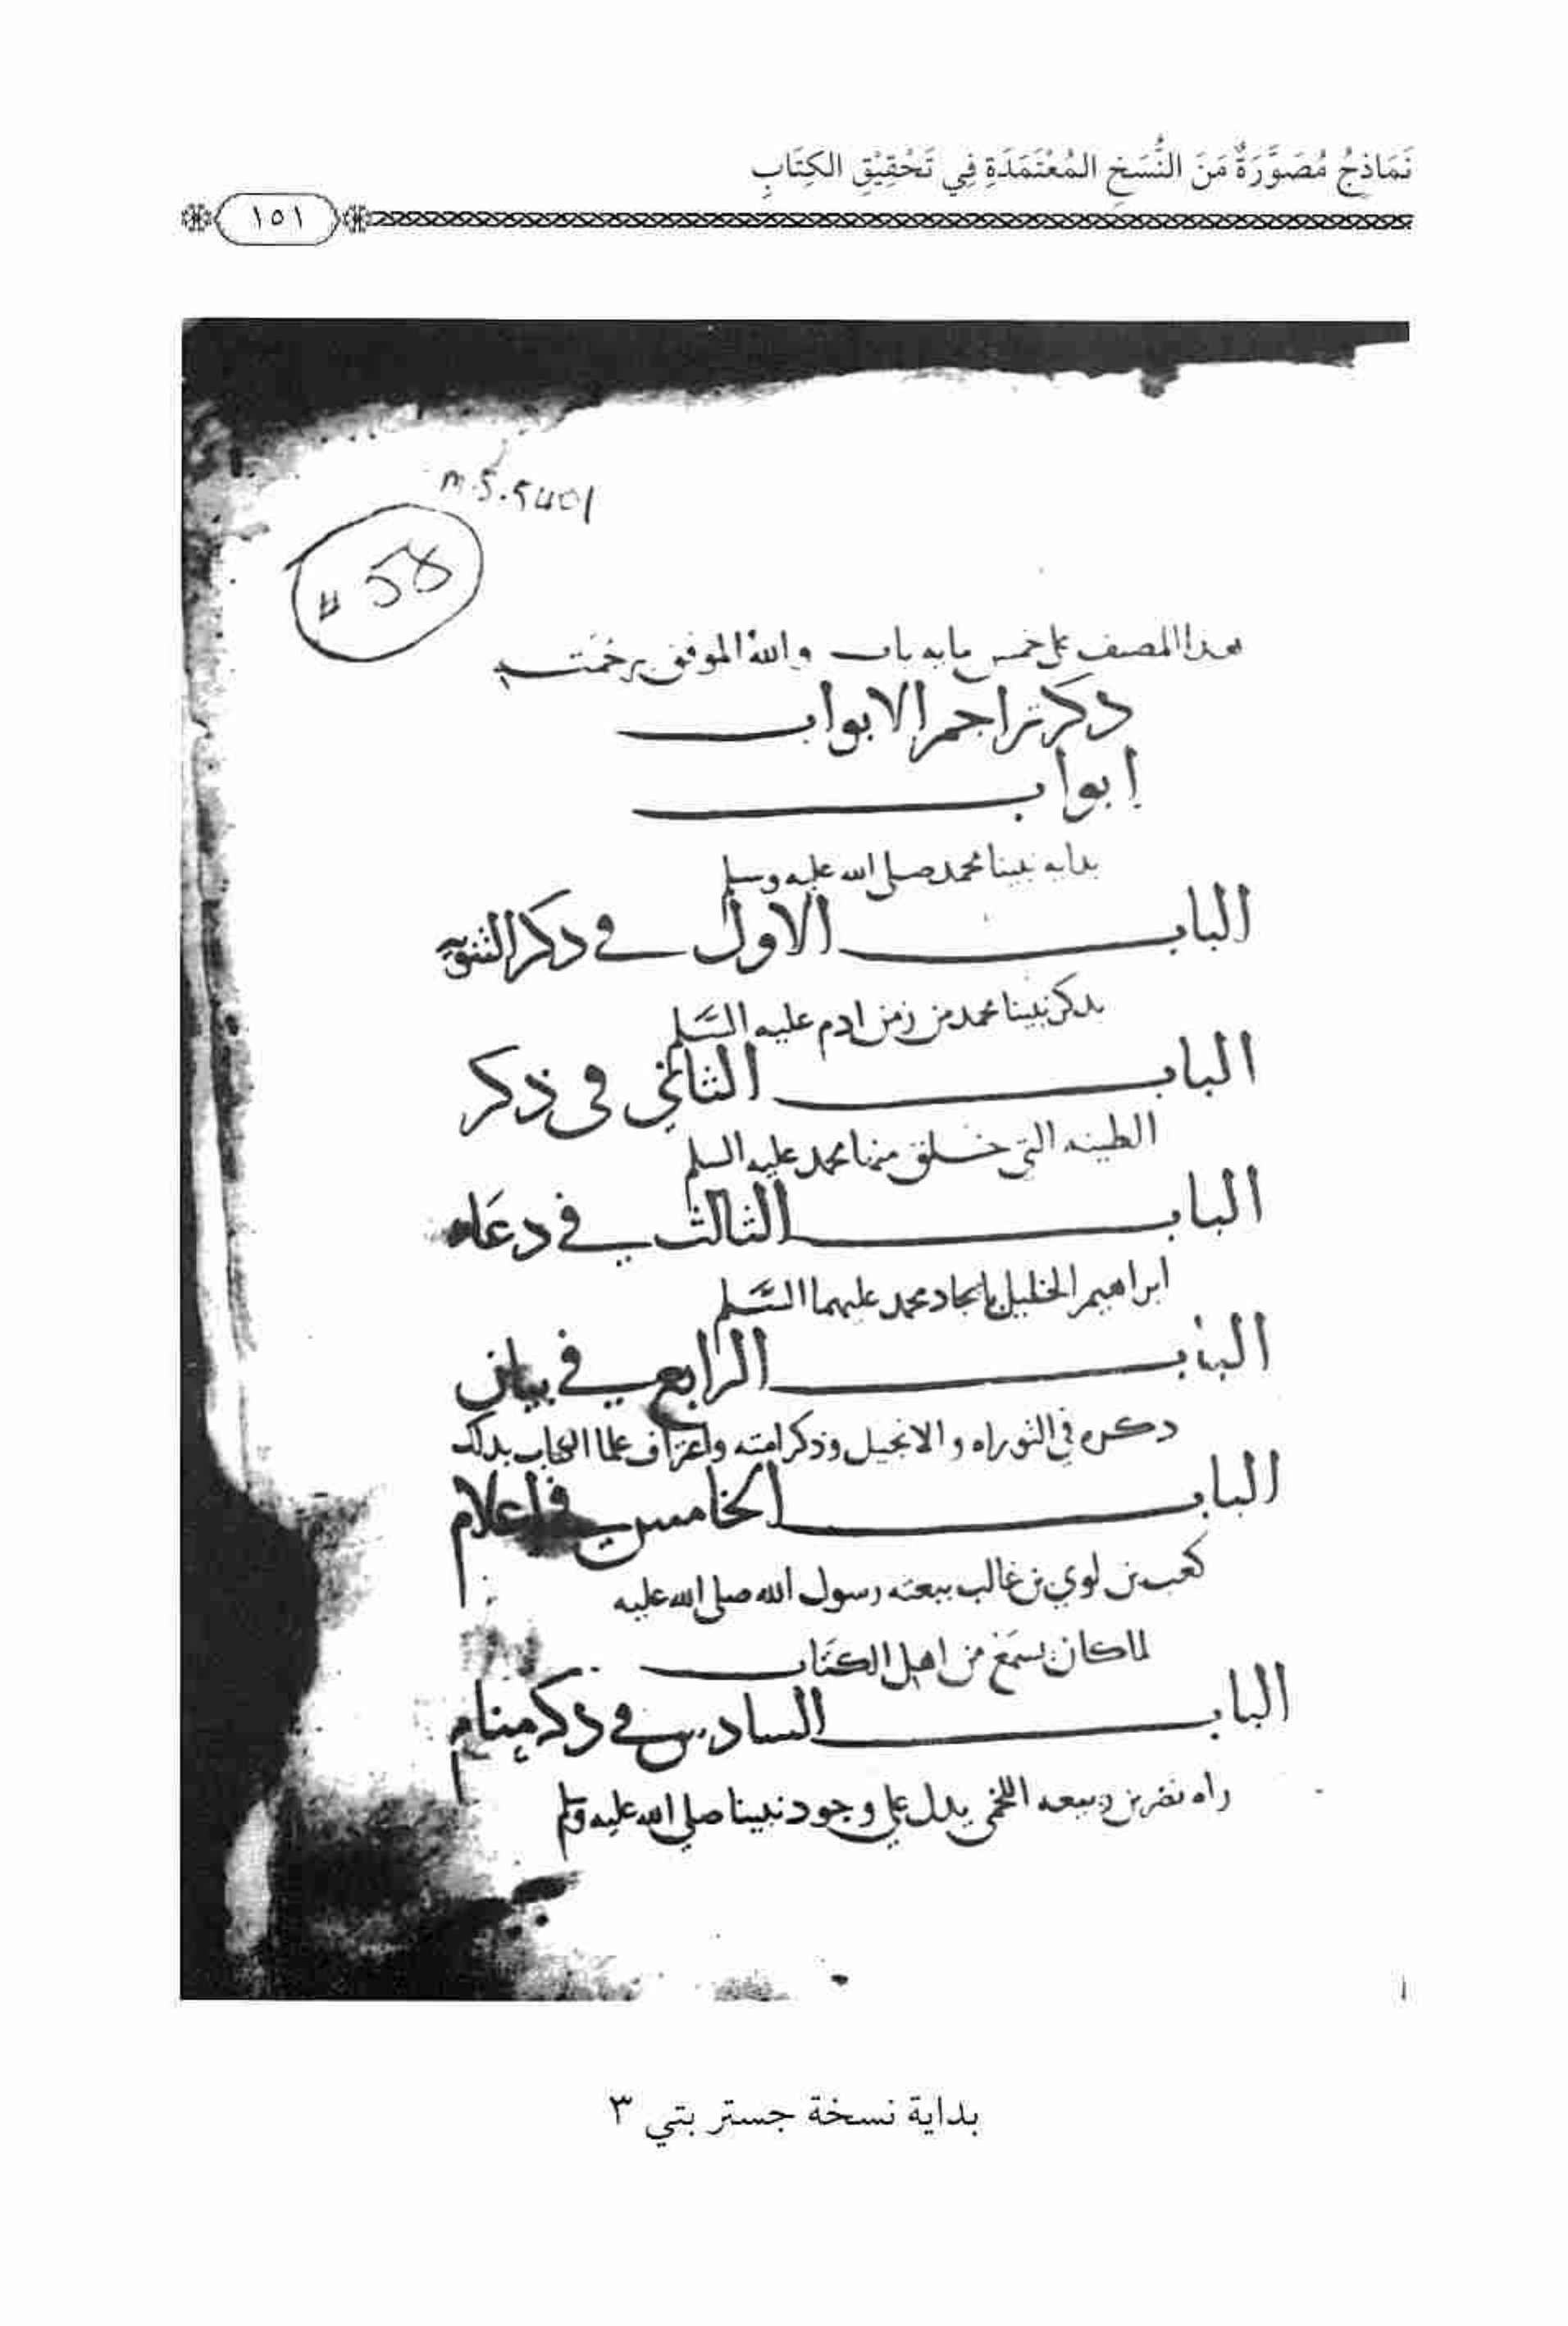 نَمَاذِجُ مُصَوَّرَةٌ مَنَ النُّسَخِ المُعْتَمَدَةِ فِي تَحْقِيْقِ الكِتَابِ
١٥١
m.S.5401
# 58
هذا المصنف على خمس مايه باب والله الموفق برحمته
ذكر تراجم الابواب
ابواب
بدايه نبينا محمد صلى الله عليه وسلم
الباب الاول في ذكر التنويه
بذكر نبينا محمد من زمن ادم عليه السَّلم
الباب الثاني في ذكر
الطينه التي خلق منها محمد عليه السلم
الباب الثالث في دعاه
ابراهيم الخليل بايجاد محمد عليهما السَّلم
الباب الرابع في بيان
دكره في التوراه والانجيل وذكر امته واعتراف علما الكتاب بدلك
الباب الخامس في اعلام
كعب بن لوي بن غالب ببعثه رسول الله صلى الله عليه
لما كان يسمع من اهل الكتاب
الباب السادس في ذكر منام
راه نصر بن ربيعه اللخمي يدل على وجود نبينا صلى الله عليه وسلم
بداية نسخة جستر بتي ٣